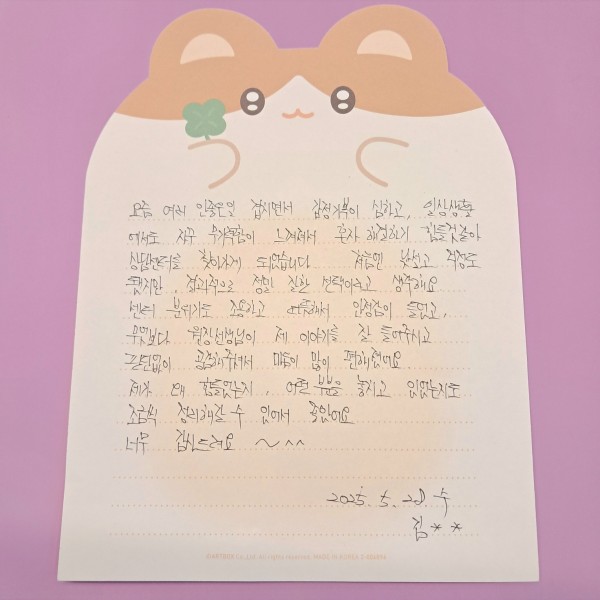 요즘 여러 안좋은일 겹치면서 감정기복이 심하고, 일상생활
에서도 자꾸 무기력함이 느껴져서 혼자 해결하기 힘들것같아
상담센터를 찾아가게 되었습니다 처음엔 낯설고 걱정도
됐지만, 결과적으로 정말 잘한 선택이라고 생각해요
센터 분위기도 조용하고 따뜻해서 안정감이 들었고,
무엇보다 원장선생님이 제 이야기를 잘 들어주시고
판단없이 공감해주셔서 마음이 많이 편해졌어요.
제가 왜 힘들었는지, 어떤 부분을 놓치고 있었는지도
조금씩 정리해갈 수 있어서 좋았어요
너무 감사드려요 ~^^
2025. 5. 28. 수
김**